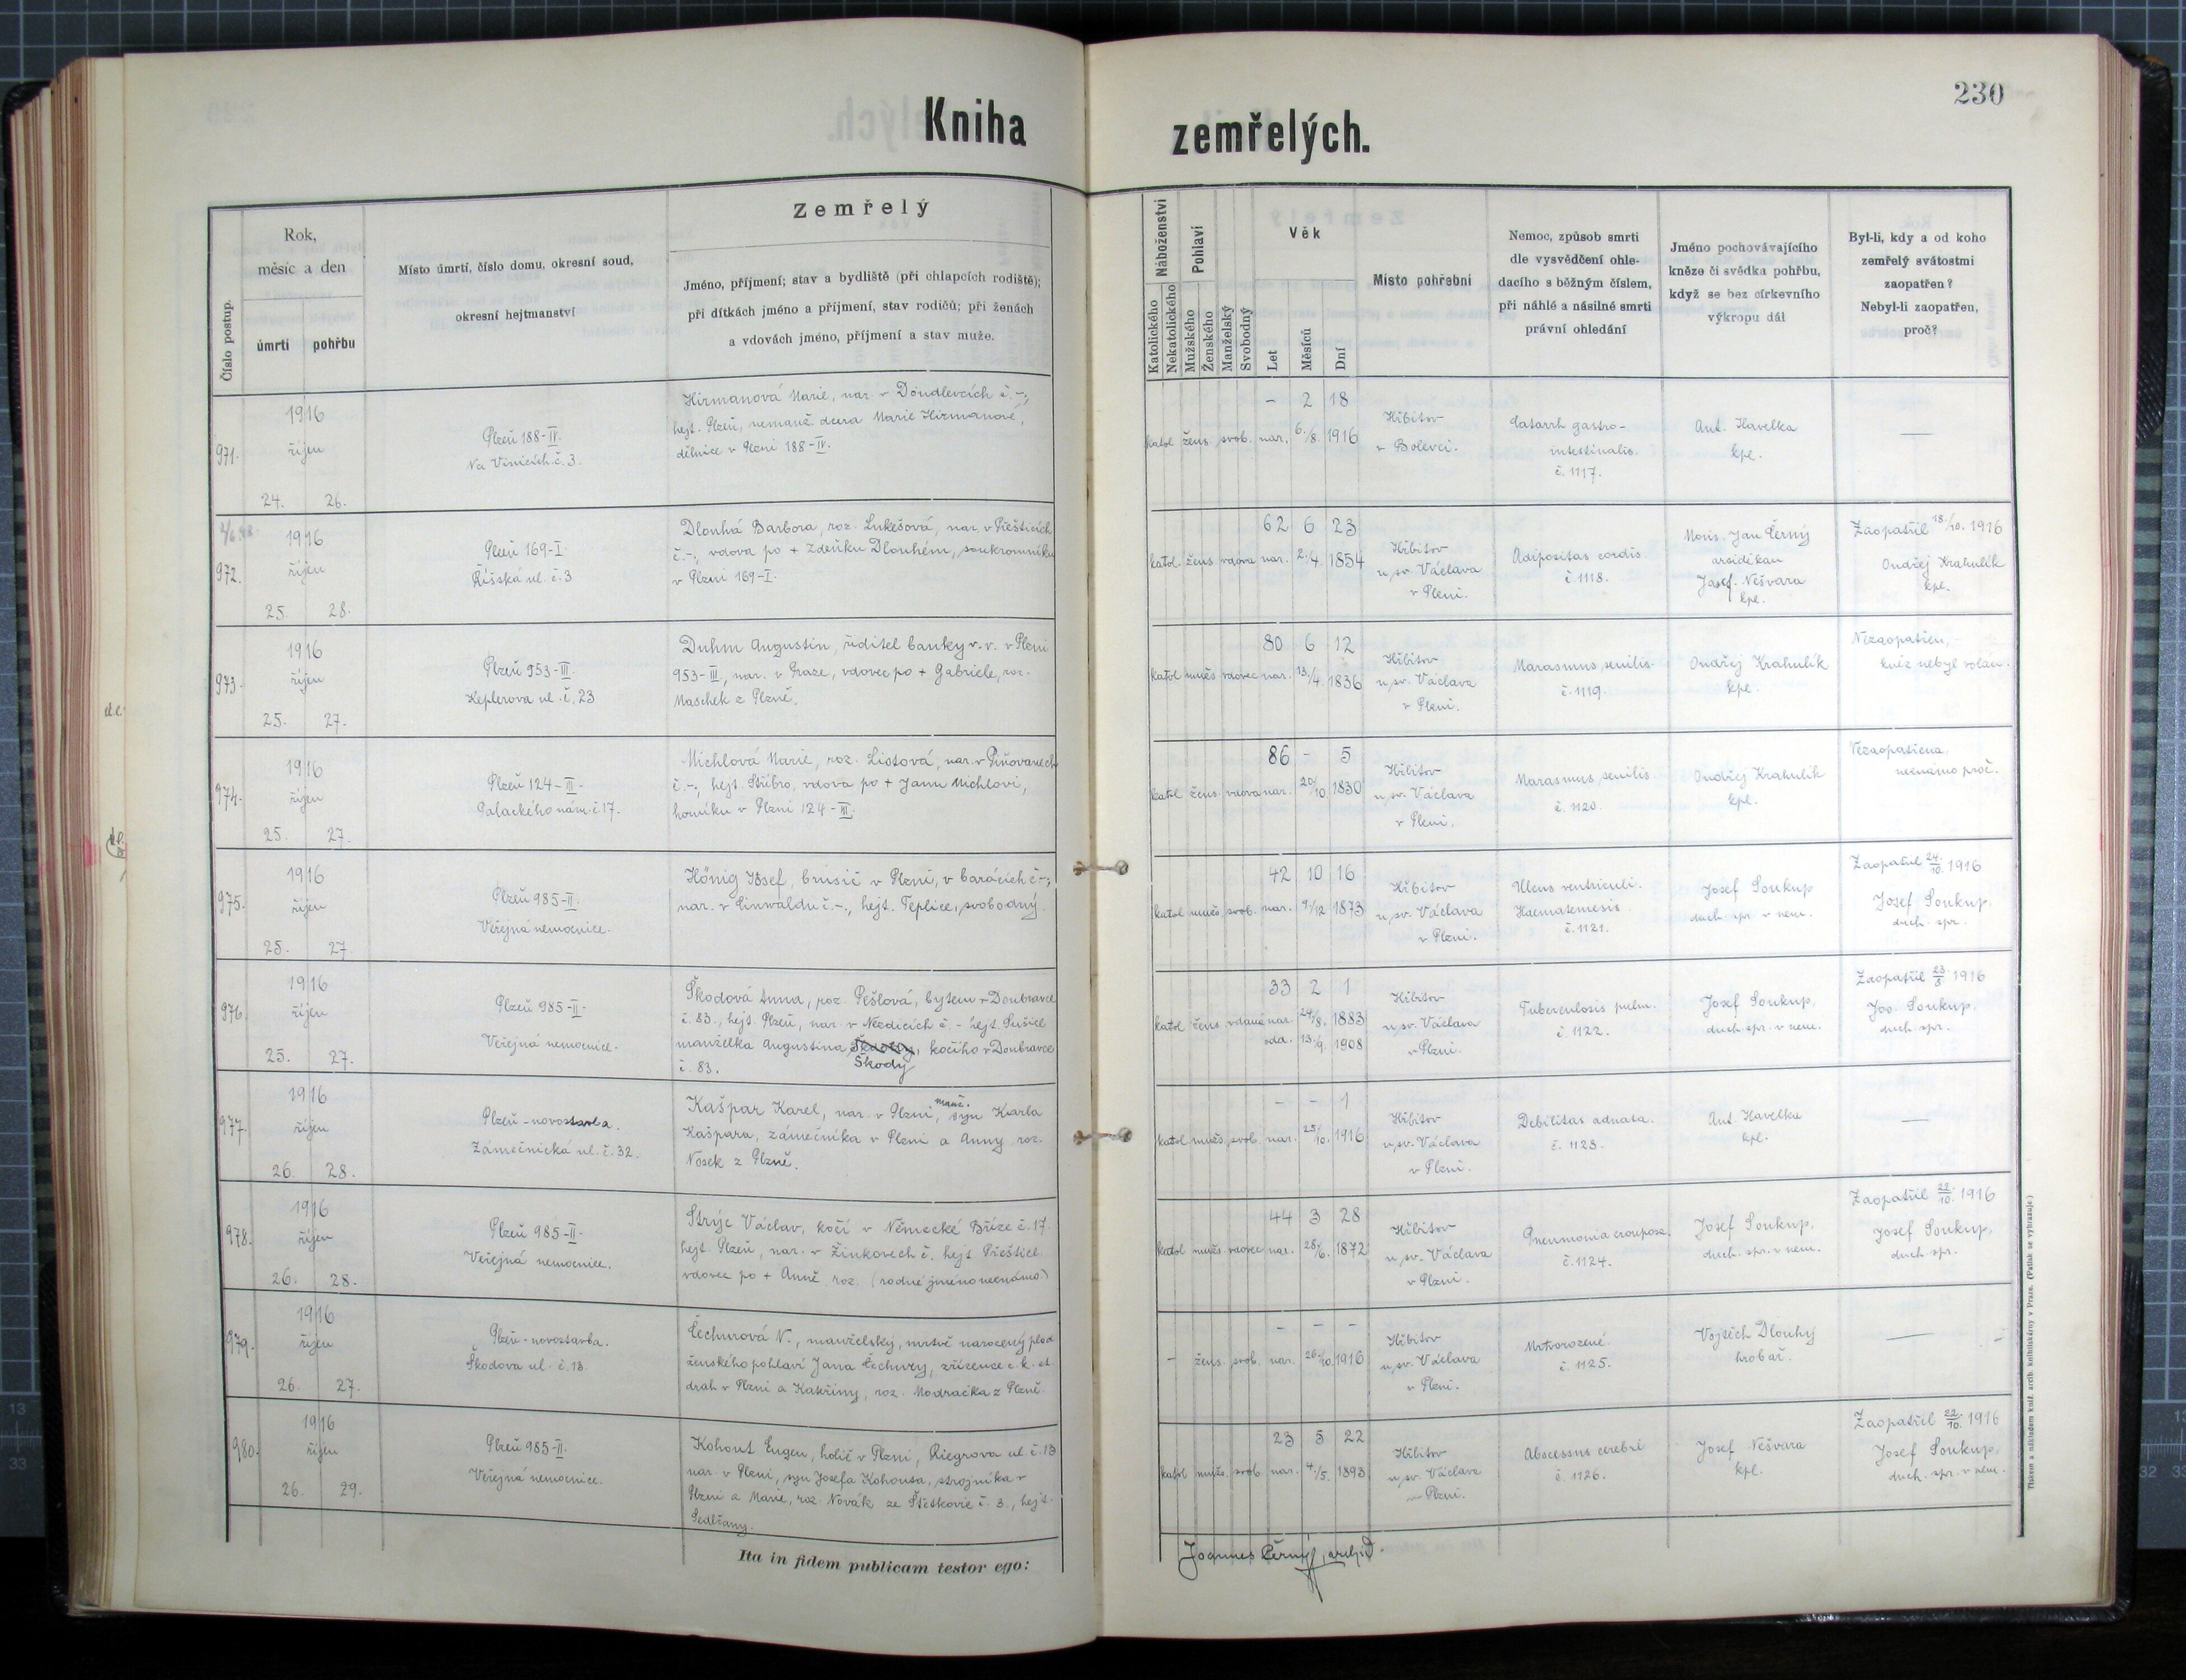 230
Kniha zemřelých.
Číslo postup.
Rok,
měsíc a den
úmrtí
pohřbu
Místo úmrtí, číslo domu, okresní soud,
okresní hejtmanství
Zemřelý
Jméno, příjmení; stav a bydliště (při chlapcích rodiště);
při dítkách jméno a příjmení, stav rodičů; při ženách
a vdovách jméno, příjmení a stav muže.
Náboženství
Katolického
Nekatolického
Pohlaví
Mužského
Ženského
Manželský
Svobodný
Věk
Let
Měsíců
Dní
Místo pohřební
Nemoc, způsob smrti
dle vysvědčení ohle-
dacího s běžným číslem,
při náhlé a násilné smrti
právní ohledání
Jméno pochovávajícího
kněze či svědka pohřbu,
když se bez církevního
výkropu dál
Byl-li, kdy a od koho
zemřelý svátostmi
zaopatřen?
Nebyl-li zaopatřen,
proč?
971.
1916
říjen
24. 26.
Plzeň 188-IV.
Na Vinicích č. 3.
Hirmanová Marie, nar. v Doudlevcích č. -,
hejt. Plzeň, nemanž. dcera Marie Hirmanové,
dělnice v Plzni 188-IV.
- 2 18
katol. žens. svob. nar. 6./8. 1916
Hřbitov
v Bolevci.
Catarrh gastro-
intestinalis.
č. 1117.
Ant. Havelka
kpl.
—
972.
1916
říjen
25. 28.
Plzeň 169-I.
Říšská ul. č. 3
Dlouhá Barbora, roz. Lukešová, nar. v Přešticích
č. -, vdova po + Zdeňku Dlouhém, soukromníku
v Plzni 169-I.
62 6 23
katol. žens. vdova nar. 2./4. 1854
Hřbitov
u sv. Václava
v Plzni.
Adipositas cordis.
č. 1118.
Mons. Jan Černý
arciděkan
Josef Nešvara
kpl.
Zaopatřil 18/10. 1916
Ondřej Krahulík
kpl.
973.
1916
říjen
25. 27.
Plzeň 953-III.
Keplerova ul. č. 23
Duhm Augustin, ředitel banky v. v. v Plzni
953-III, nar. v Praze, vdovec po + Gabriele, roz.
Maschek z Plzně.
80 6 12
katol. mužs. vdovec nar. 13./4. 1836
Hřbitov
u sv. Václava
v Plzni.
Marasmus senilis.
č. 1119.
Ondřej Krahulík
kpl.
Nezaopatřen,
kněz nebyl volán.
974.
1916
říjen
25. 27.
Plzeň 124-III.
Palackého nám. č. 17.
Michlová Marie, roz. Listová, nar. v Piňovanech
č. -, hejt. Stříbro, vdova po + Janu Michlovi,
horníku v Plzni 124-III.
86 - 5
katol. žens. vdova nar. 20/10 1830
Hřbitov
u sv. Václava
v Plzni.
Marasmus senilis.
č. 1120.
Ondřej Krahulík
kpl.
Nezaopatřena,
neznámo proč.
975.
1916
říjen
25. 27.
Plzeň 985-II.
Veřejná nemocnice.
Hönig Josef, brusič v Plzni, v barácích č. -,
nar. v Einwaldu č. -, hejt. Teplice, svobodný.
42 10 16
katol. mužs. svob. nar. 9/12 1873
Hřbitov
u sv. Václava
v Plzni.
Ulcus ventriculi.
Haematemesis.
č. 1121.
Josef Soukup
duch. spr. v nem.
Zaopatřil 24./10. 1916
Josef Soukup,
duch. spr.
976.
1916
říjen
25. 27.
Plzeň 985-II.
Veřejná nemocnice.
Škodová Anna, roz. Pešlová, bytem v Doubravce
č. 83., hejt. Plzeň, nar. v Nezdicích č. - hejt. Sušice
manželka Augustina Škody, kočího v Doubravce
č. 83.
33 2 1
katol. žens. vdaná nar. 24/8. 1883
odd. 13./9. 1908
Hřbitov
u sv. Václava
v Plzni.
Tuberculosis pulm.
č. 1122.
Josef Soukup,
duch. spr. v nem.
Zaopatřil 23/8 1916
Jos. Soukup,
duch. spr.
977.
1916
říjen
26. 28.
Plzeň - novostavba.
Zámečnická ul. č. 32.
Kašpar Karel, nar. v Plzni, manž. syn Karla
Kašpara, zámečníka v Plzni a Anny roz.
Nosek z Plzně.
- - 1
katol. mužs. svob. nar. 25./10. 1916
Hřbitov
u sv. Václava
v Plzni.
Debilitas adnata.
č. 1123.
Ant. Havelka
kpl.
—
978.
1916
říjen
26. 28.
Plzeň 985-II.
Veřejná nemocnice.
Strýc Václav, kočí v Německé Bříze č. 17.
hejt. Plzeň, nar. v Žinkovech č. hejt. Přeštice
vdovec po + Anně roz. (rodné jméno neznámo)
44 3 28
katol. mužs. vdovec nar. 28./6. 1872
Hřbitov
u sv. Václava
v Plzni.
Pneumonia crouposa.
č. 1124.
Josef Soukup,
duch. spr. v nem.
Zaopatřil 22./10. 1916
Josef Soukup,
duch. spr.
979.
1916
říjen
26. 27.
Plzeň - novostavba.
Škodova ul. č. 13.
Čechurová N., manželský, mrtvě narozený plod
ženského pohlaví Jana Čechury, zřízence c. k. st.
drah v Plzni a Kateřiny, roz. Modračka z Plzně.
- - -
- žens. svob. nar. 26./10. 1916
Hřbitov
u sv. Václava
v Plzni.
Mrtvorozené.
č. 1125.
Vojtěch Dlouhý
hrobař.
—
980.
1916
říjen
26. 29.
Plzeň 985-II.
Veřejná nemocnice.
Kohout Eugen, holič v Plzni, Riegrova ul. č. 13
nar. v Plzni, syn Josefa Kohouta, strojníka v
Plzni a Marie, roz. Novák ze Štětkovic č. 3., hejt.
Sedlčany.
23 5 22
katol. mužs. svob. nar. 4./5. 1893
Hřbitov
u sv. Václava
v Plzni.
Abscessus cerebri
č. 1126.
Josef Nešvara
kpl.
Zaopatřil 22./10. 1916
Josef Soukup,
duch. spr. v nem.
Ita in fidem publicam testor ego:
Joannes Černý, archid.
Tiskem a nákladem kníž. arcib. knihtiskárny v Praze. (Patisk se vyhrazuje.)